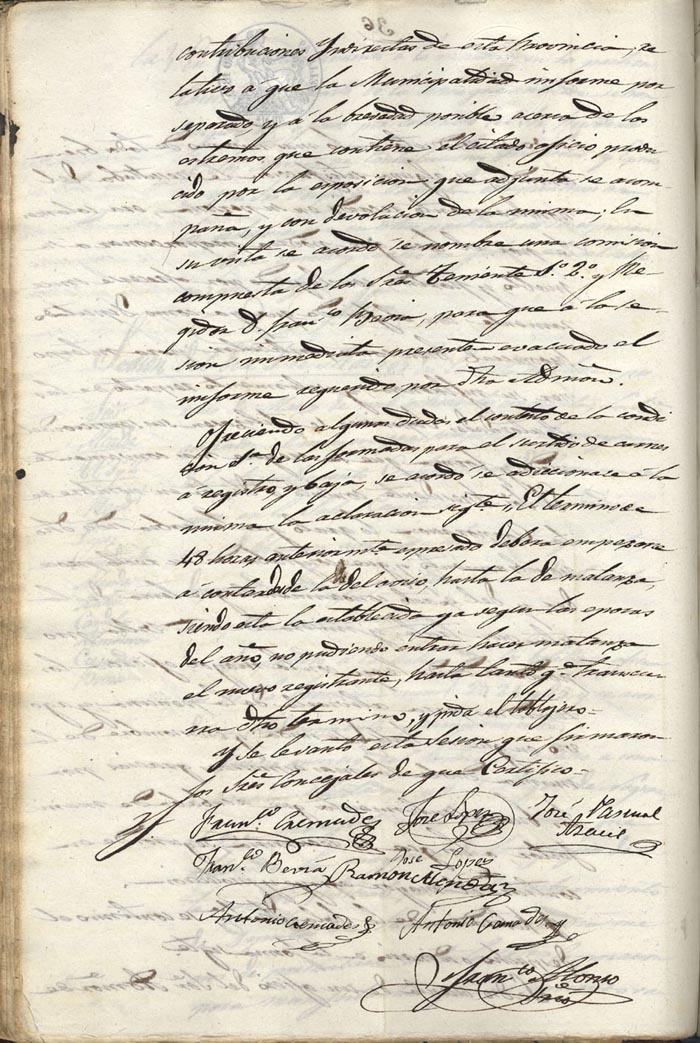 contribuciones Yndirectas de esta Provincia, re
lativo a que la Municipalidad informe por
separado y á la brevedad posible acerca de los
estremos que contiene el citado oficio produ
cido por la esposicion que adjunta se acom
paña, y con devolucion de la misma; En
su vista se acordó se nombre una comision
compuesta de los Sres. Teniente 1º 2º y Re
gidor D. Franco. Beviá, para que á la se
sion inmediata presenten evacuado el
informe requerido por dha Admon.
Ofreciendo algunas dudas el contesto de la condi
cion 1ª de las formadas para el surtido de carnes
á registro y baja, se acordó se adiccionase á la
misma la aclaracion sigte; El termino de
48 horas anteriormte espresado debera empezarse
á contar desde la del aviso, hasta la de matanza,
siendo esta la establecida ya segun las epocas
del año, no pudiendo entrar hacer matanza
el nuevo registrante, hasta tanto qe transcur
ra dho termino, y pida el tablagero=
Y se levantó esta sesion que firmaron
los Sres Concejales de que Certifico=
Franco. Cremades José Lopez José Pascual
Franco Beviá José Lopez
Ramon
Antonio Cremades Antonio
Franco Alonso
Srio